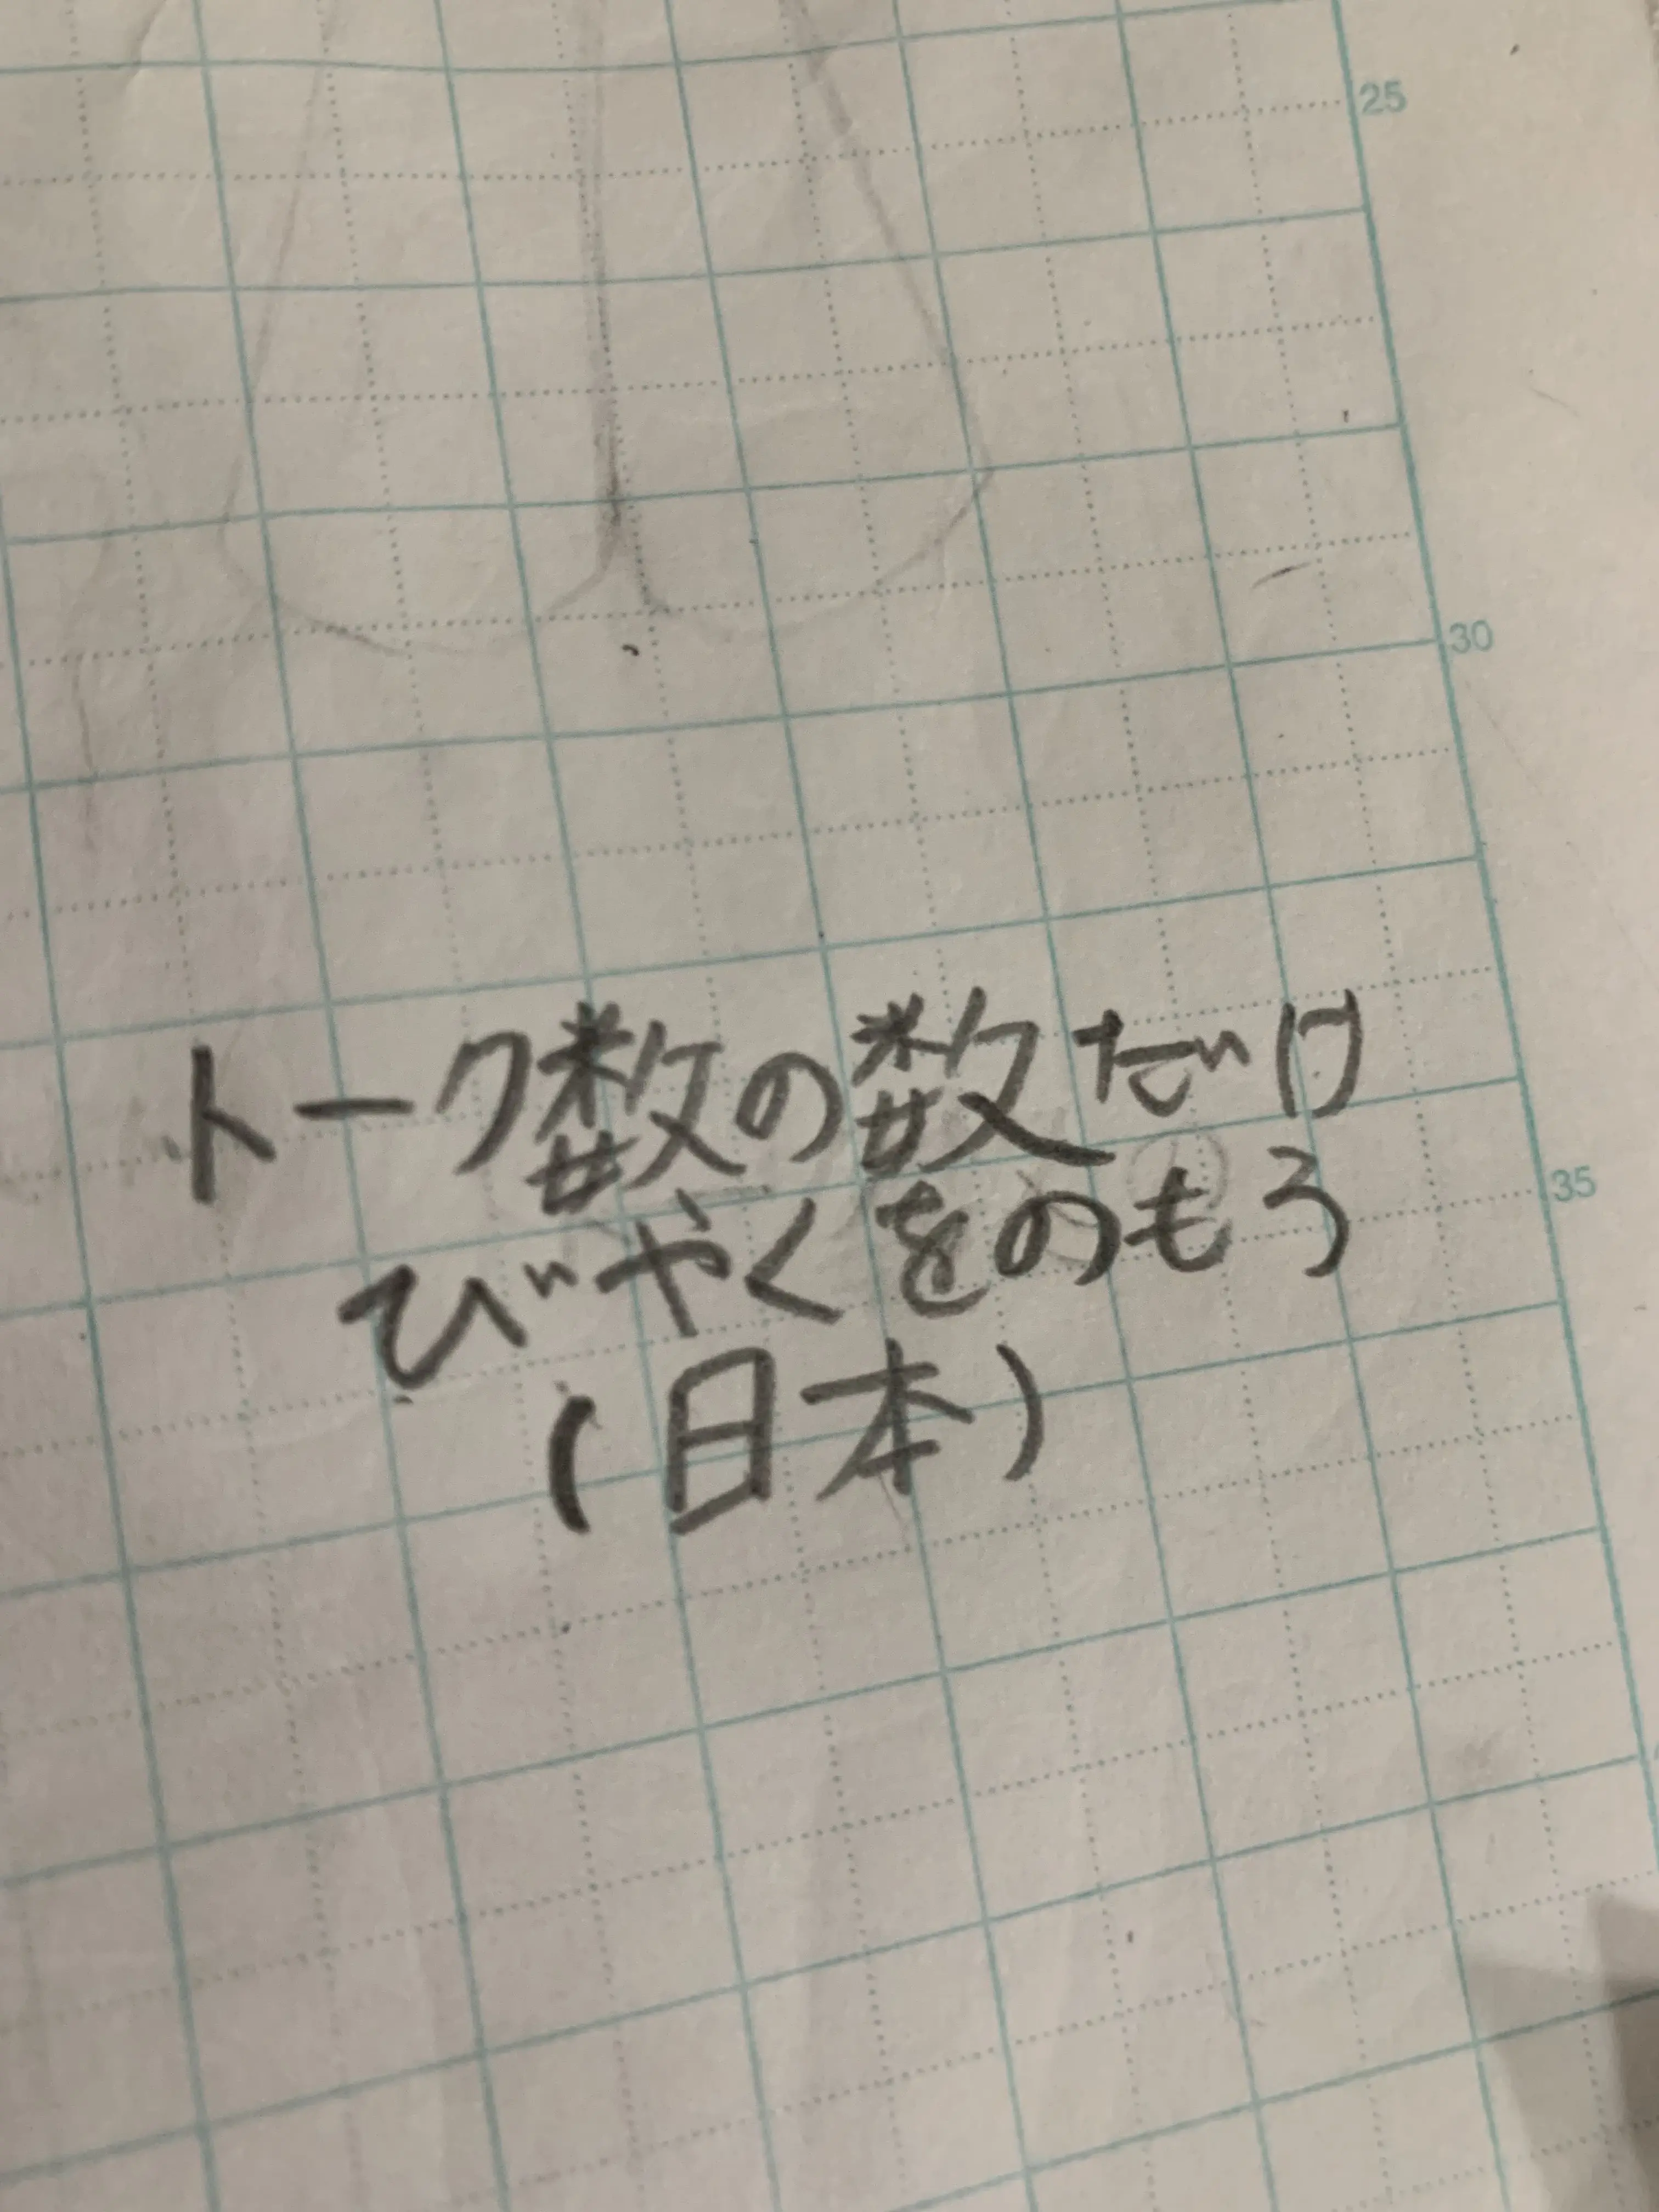 25
30
トーク数の数だけ
びやくをのもろ
35
(日本)